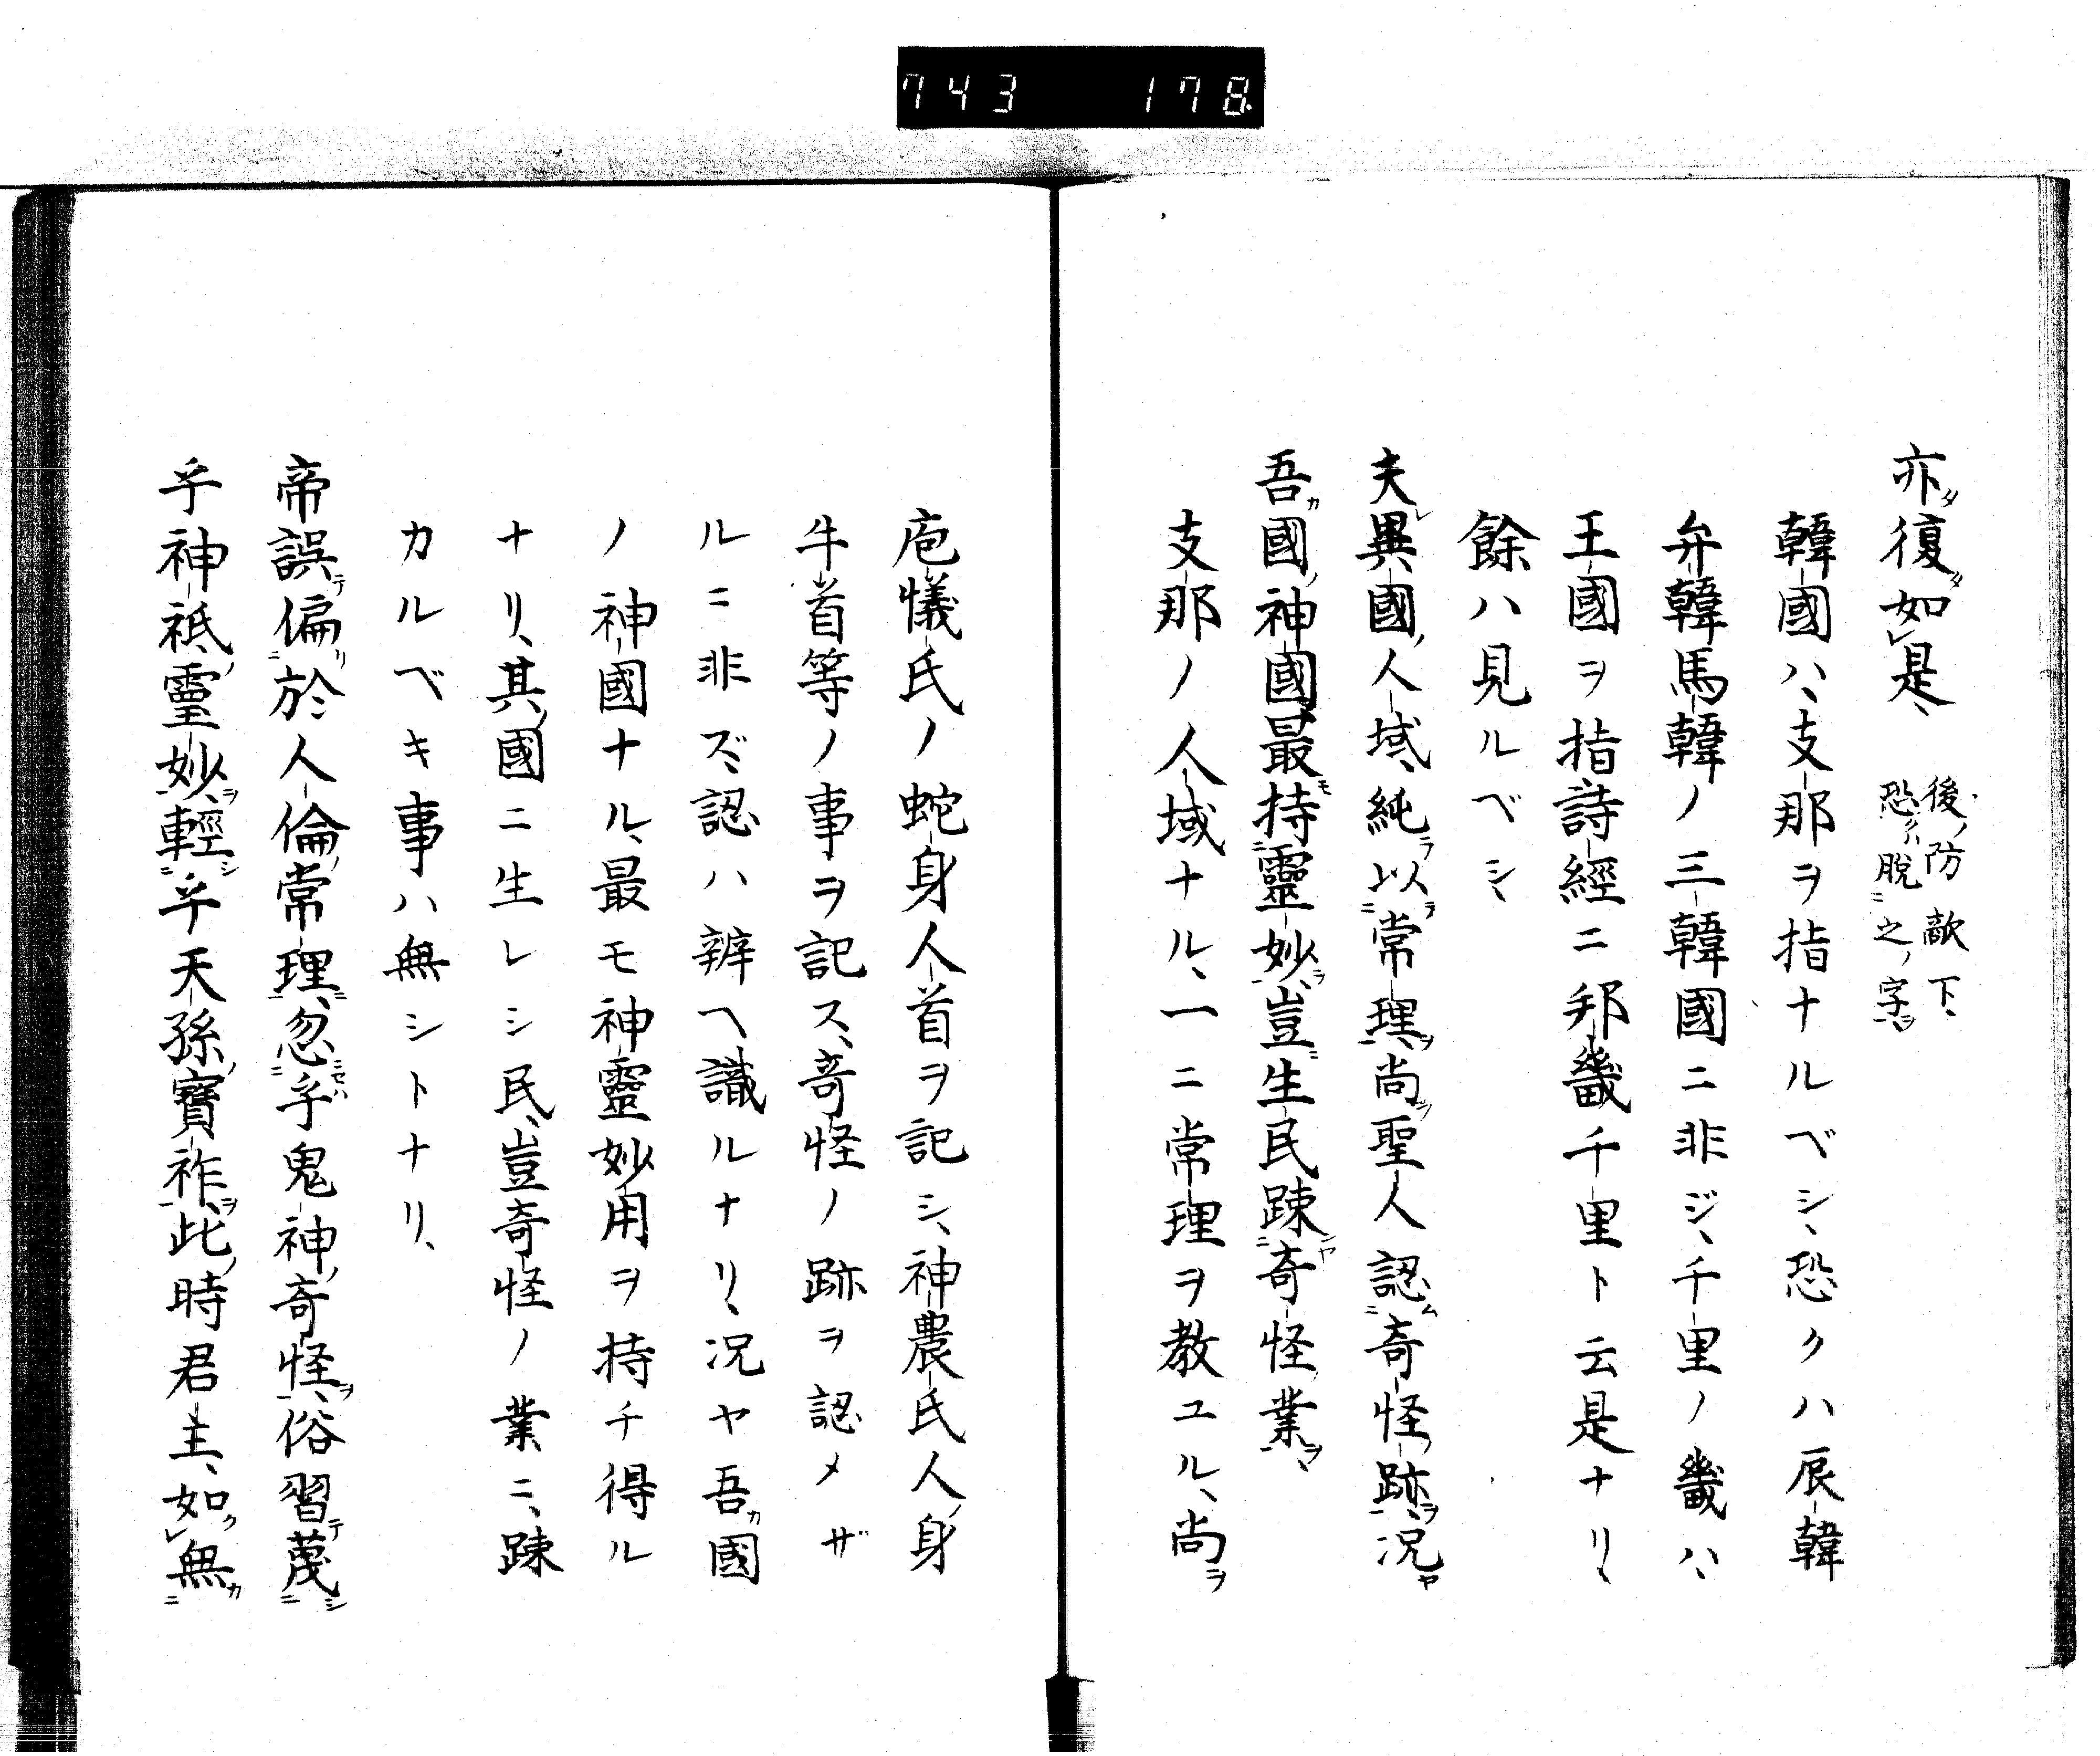 743 178
亦復如是、後ノ防敵下、恐クハ脱之ノ字ヲ
韓國ハ、支那ヲ指ナルベシ、恐クハ辰韓
弁韓馬韓ノ三韓國ニ非ジ、千里ノ畿ハ、
王國ヲ指、詩經ニ邦畿千里ト云是ナリ、
餘ハ見ルベシ、
夫異國ノ人域、純ラ以常理ヲ、尚ヲ聖人認ム奇怪ノ跡ヲ、况ヤ
吾カ國ノ神國最モ持靈妙ヲ、豈ニ生民踈ンヤ奇怪ノ業ヲ、
支那ノ人域ナル、一ニ常理ヲ教ユル、尚ヲ
庖犧氏ノ蛇身人首ヲ記シ、神農氏人身
牛首等ノ事ヲ記ス、奇怪ノ跡ヲ認メザ
ルニ非ズ、認ハ辨ヘ識ルナリ、况ヤ吾カ國
ノ神國ナル、最モ神靈妙用ヲ持チ得ル
ナリ、其ノ國ニ生レシ民、豈奇怪ノ業ニ、踈
カルベキ事ハ無シトナリ、
帝誤テ偏リ於人倫ノ常理ニ、忽ニセハ乎鬼神ノ奇怪ヲ、俗習テ蔑シ
乎神祇ノ靈妙ヲ、輕シ乎天孫ノ寳祚ヲ、此ノ時君主、如ク無カ